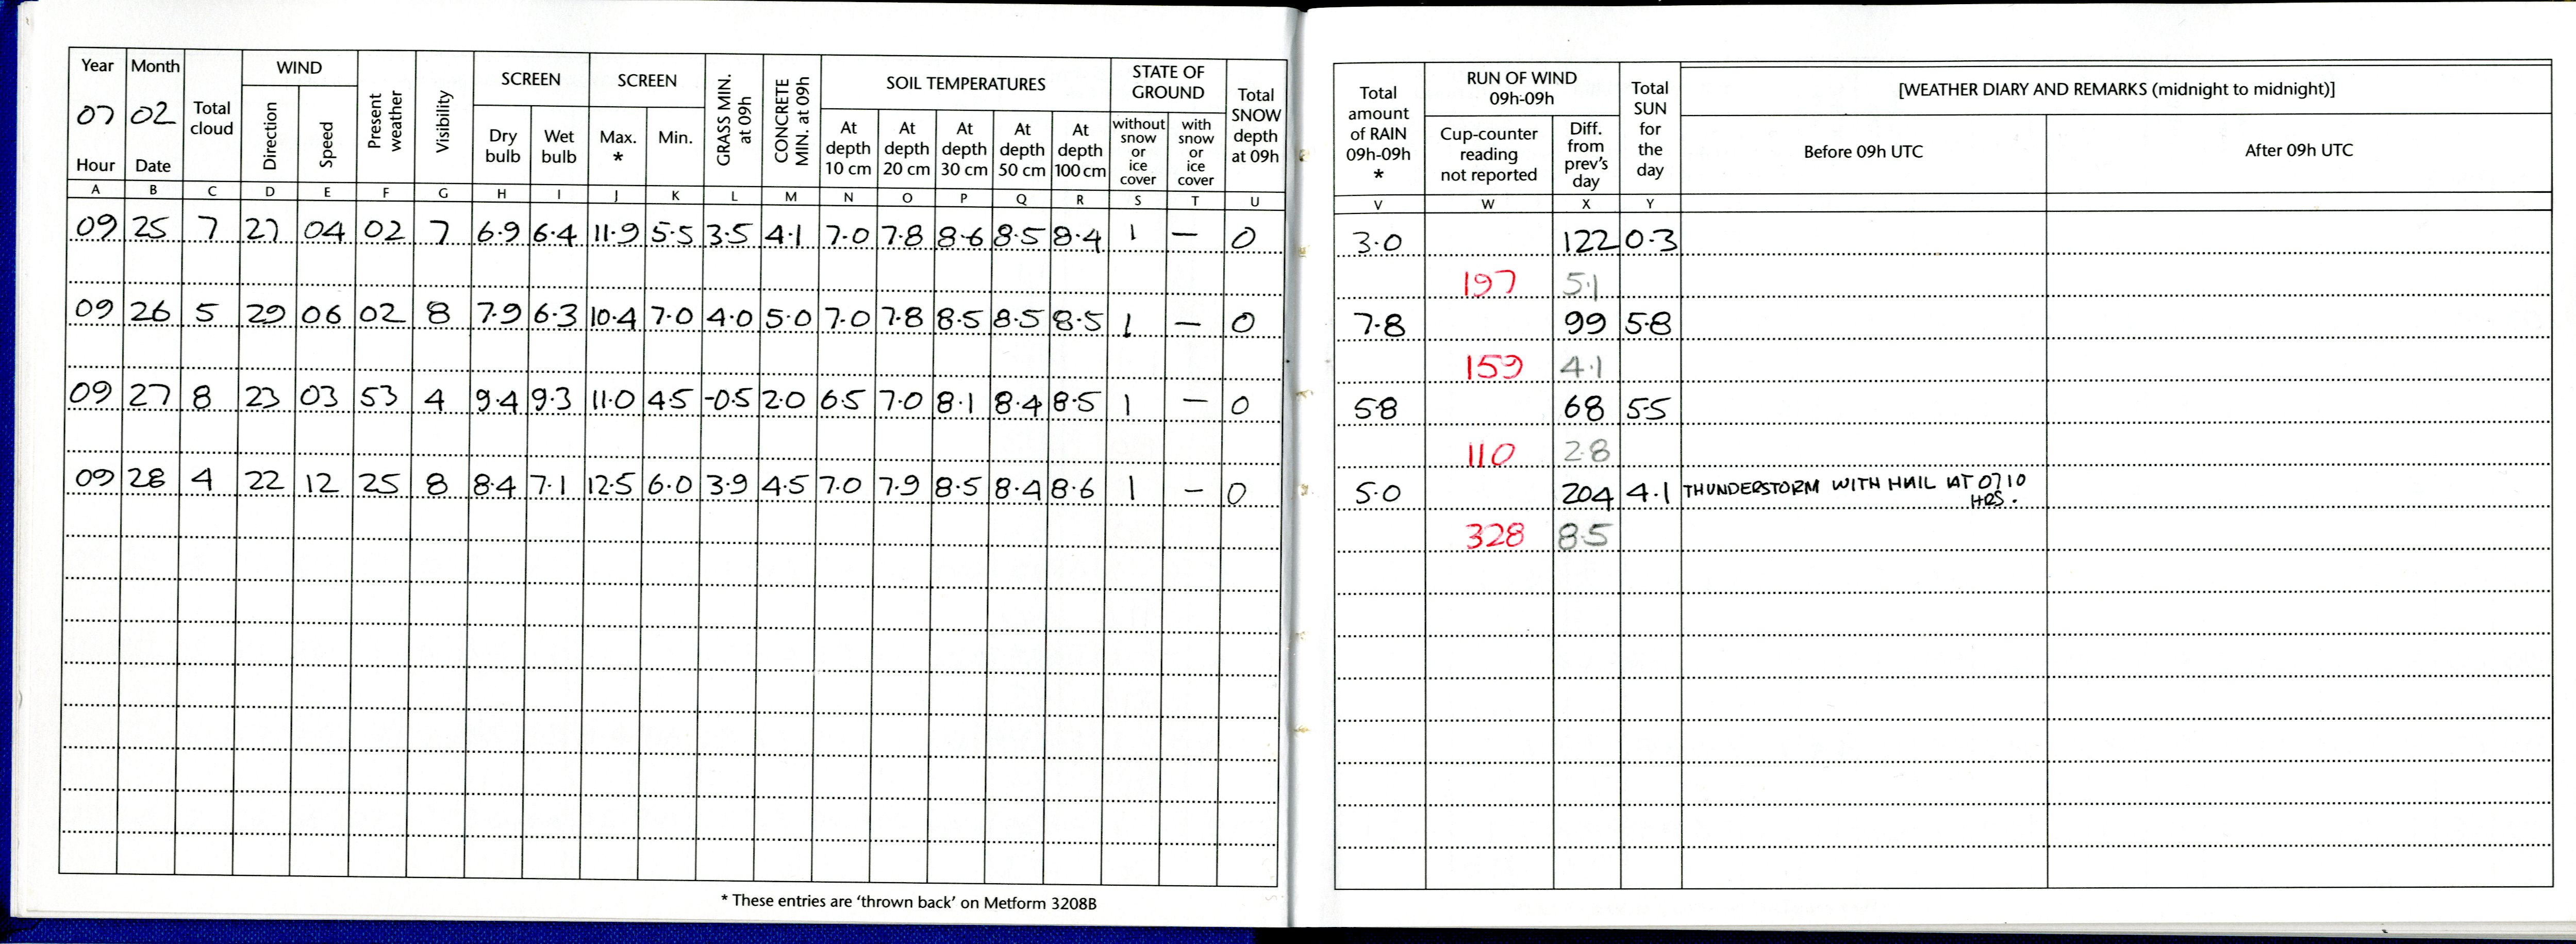 Year Month Total cloud WIND Present weather Visibility SCREEN SCREEN GRASS MIN. at 09h CONCRETE MIN. at 09h SOIL TEMPERATURES STATE OF GROUND Total SNOW depth at 09h
07 02 Direction Speed Dry bulb Wet bulb Max. * Min. At depth 10 cm At depth 20 cm At depth 30 cm At depth 50 cm At depth 100 cm without snow or ice cover with snow or ice cover
Hour Date
A B C D E F G H I J K L M N O P Q R S T U
09 25 7 27 04 02 7 6.9 6.4 11.9 5.5 3.5 4.1 7.0 7.8 8.6 8.5 8.4 1 — 0
09 26 5 29 06 02 8 7.9 6.3 10.4 7.0 4.0 5.0 7.0 7.8 8.5 8.5 8.5 1 — 0
09 27 8 23 03 53 4 9.4 9.3 11.0 4.5 -0.5 2.0 6.5 7.0 8.1 8.4 8.5 1 — 0
09 28 4 22 12 25 8 8.4 7.1 12.5 6.0 3.9 4.5 7.0 7.9 8.5 8.4 8.6 1 — 0
* These entries are ‘thrown back’ on Metform 3208B
Total amount of RAIN 09h-09h * RUN OF WIND 09h-09h Total SUN for the day [WEATHER DIARY AND REMARKS (midnight to midnight)]
Cup-counter reading not reported Diff. from prev’s day Before 09h UTC After 09h UTC
V W X Y
3.0 122 0.3
197 5.1
7.8 99 5.8
159 4.1
5.8 68 5.5
110 2.8
5.0 204 4.1 THUNDERSTORM WITH HAIL AT 0710
HRS.
328 8.5